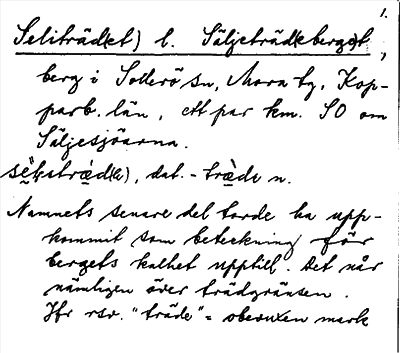 1.
Seliträd(et) l. Säljeträd(e)berget,
berg i Sollerö sn, Mora tg, Kop-
parb. län, ett par km. SO om
Säljesjöarna.
dat. - n.
Namnets senare del torde ha upp-
kommit som beteckning för
bergets kalhet upptill. Det når
nämligen över trädgränsen.
Jfr rsv. "träde" = obevuxen mark